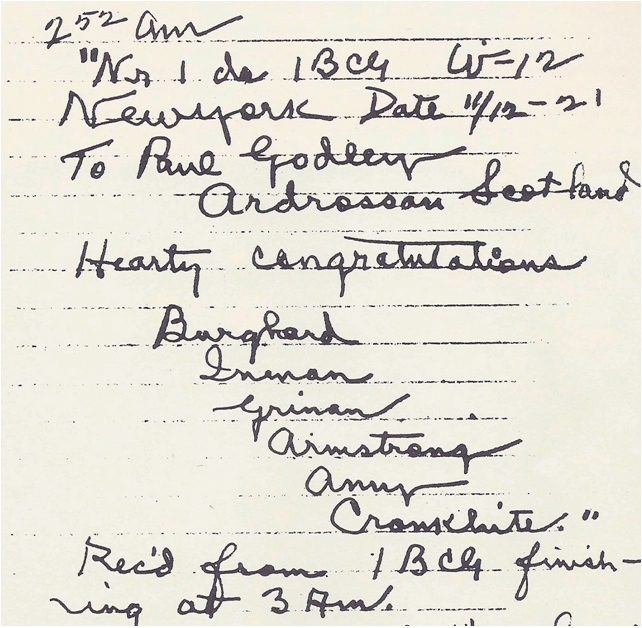 2 52 Am
"Nr 1 de 1BCG W-12
Newyork Date 11/12-21
To Paul Godley
Ardrossan Scotland
Hearty congratulations
Burghard
Inman
Grinan
Armstrong
Amy
Cronkhite."
Rec'd from 1BCG finish-
ing at 3 Am.